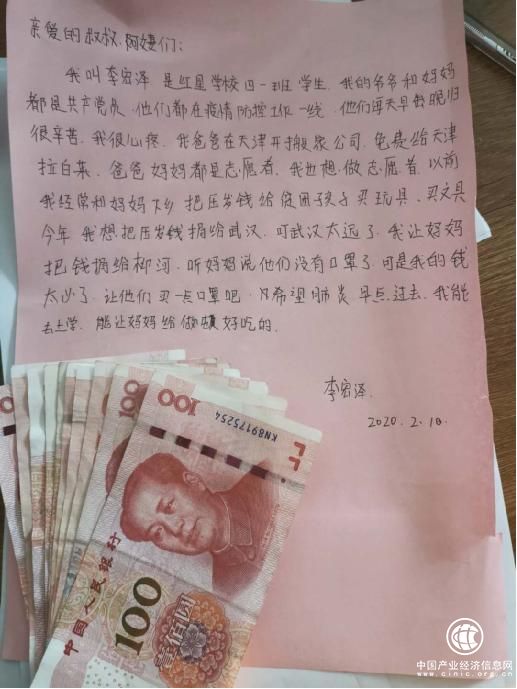 亲爱的叔叔、阿姨们：
我叫李宏泽 是红星学校四一班学生、我的爸爸和妈妈
都是共产党员、他们都在疫情防控工作一线、他们每天早出晚归
很辛苦、我很心疼、我爸爸在天津开搬家公司、免费给天津
拉白菜、爸爸妈妈都是志愿者、我也想做志愿者、以前
我经常和妈妈下乡 把压岁钱给贫困孩子买玩具、买文具
今年 我想把压岁钱捐给武汉、可武汉太远了、我让妈妈
把钱捐给柳河、听妈妈说他们没有口罩了、可是我的钱
太少了、让他们买一点口罩吧、只希望肺炎早点过去、我能
去上学、能让妈妈给做顿好吃的、
李宏泽
2020.2.18.
KN89175254
100
中国人民银行
100
壹佰圆
100
中国产业经济信息网
www.cinic.org.cn